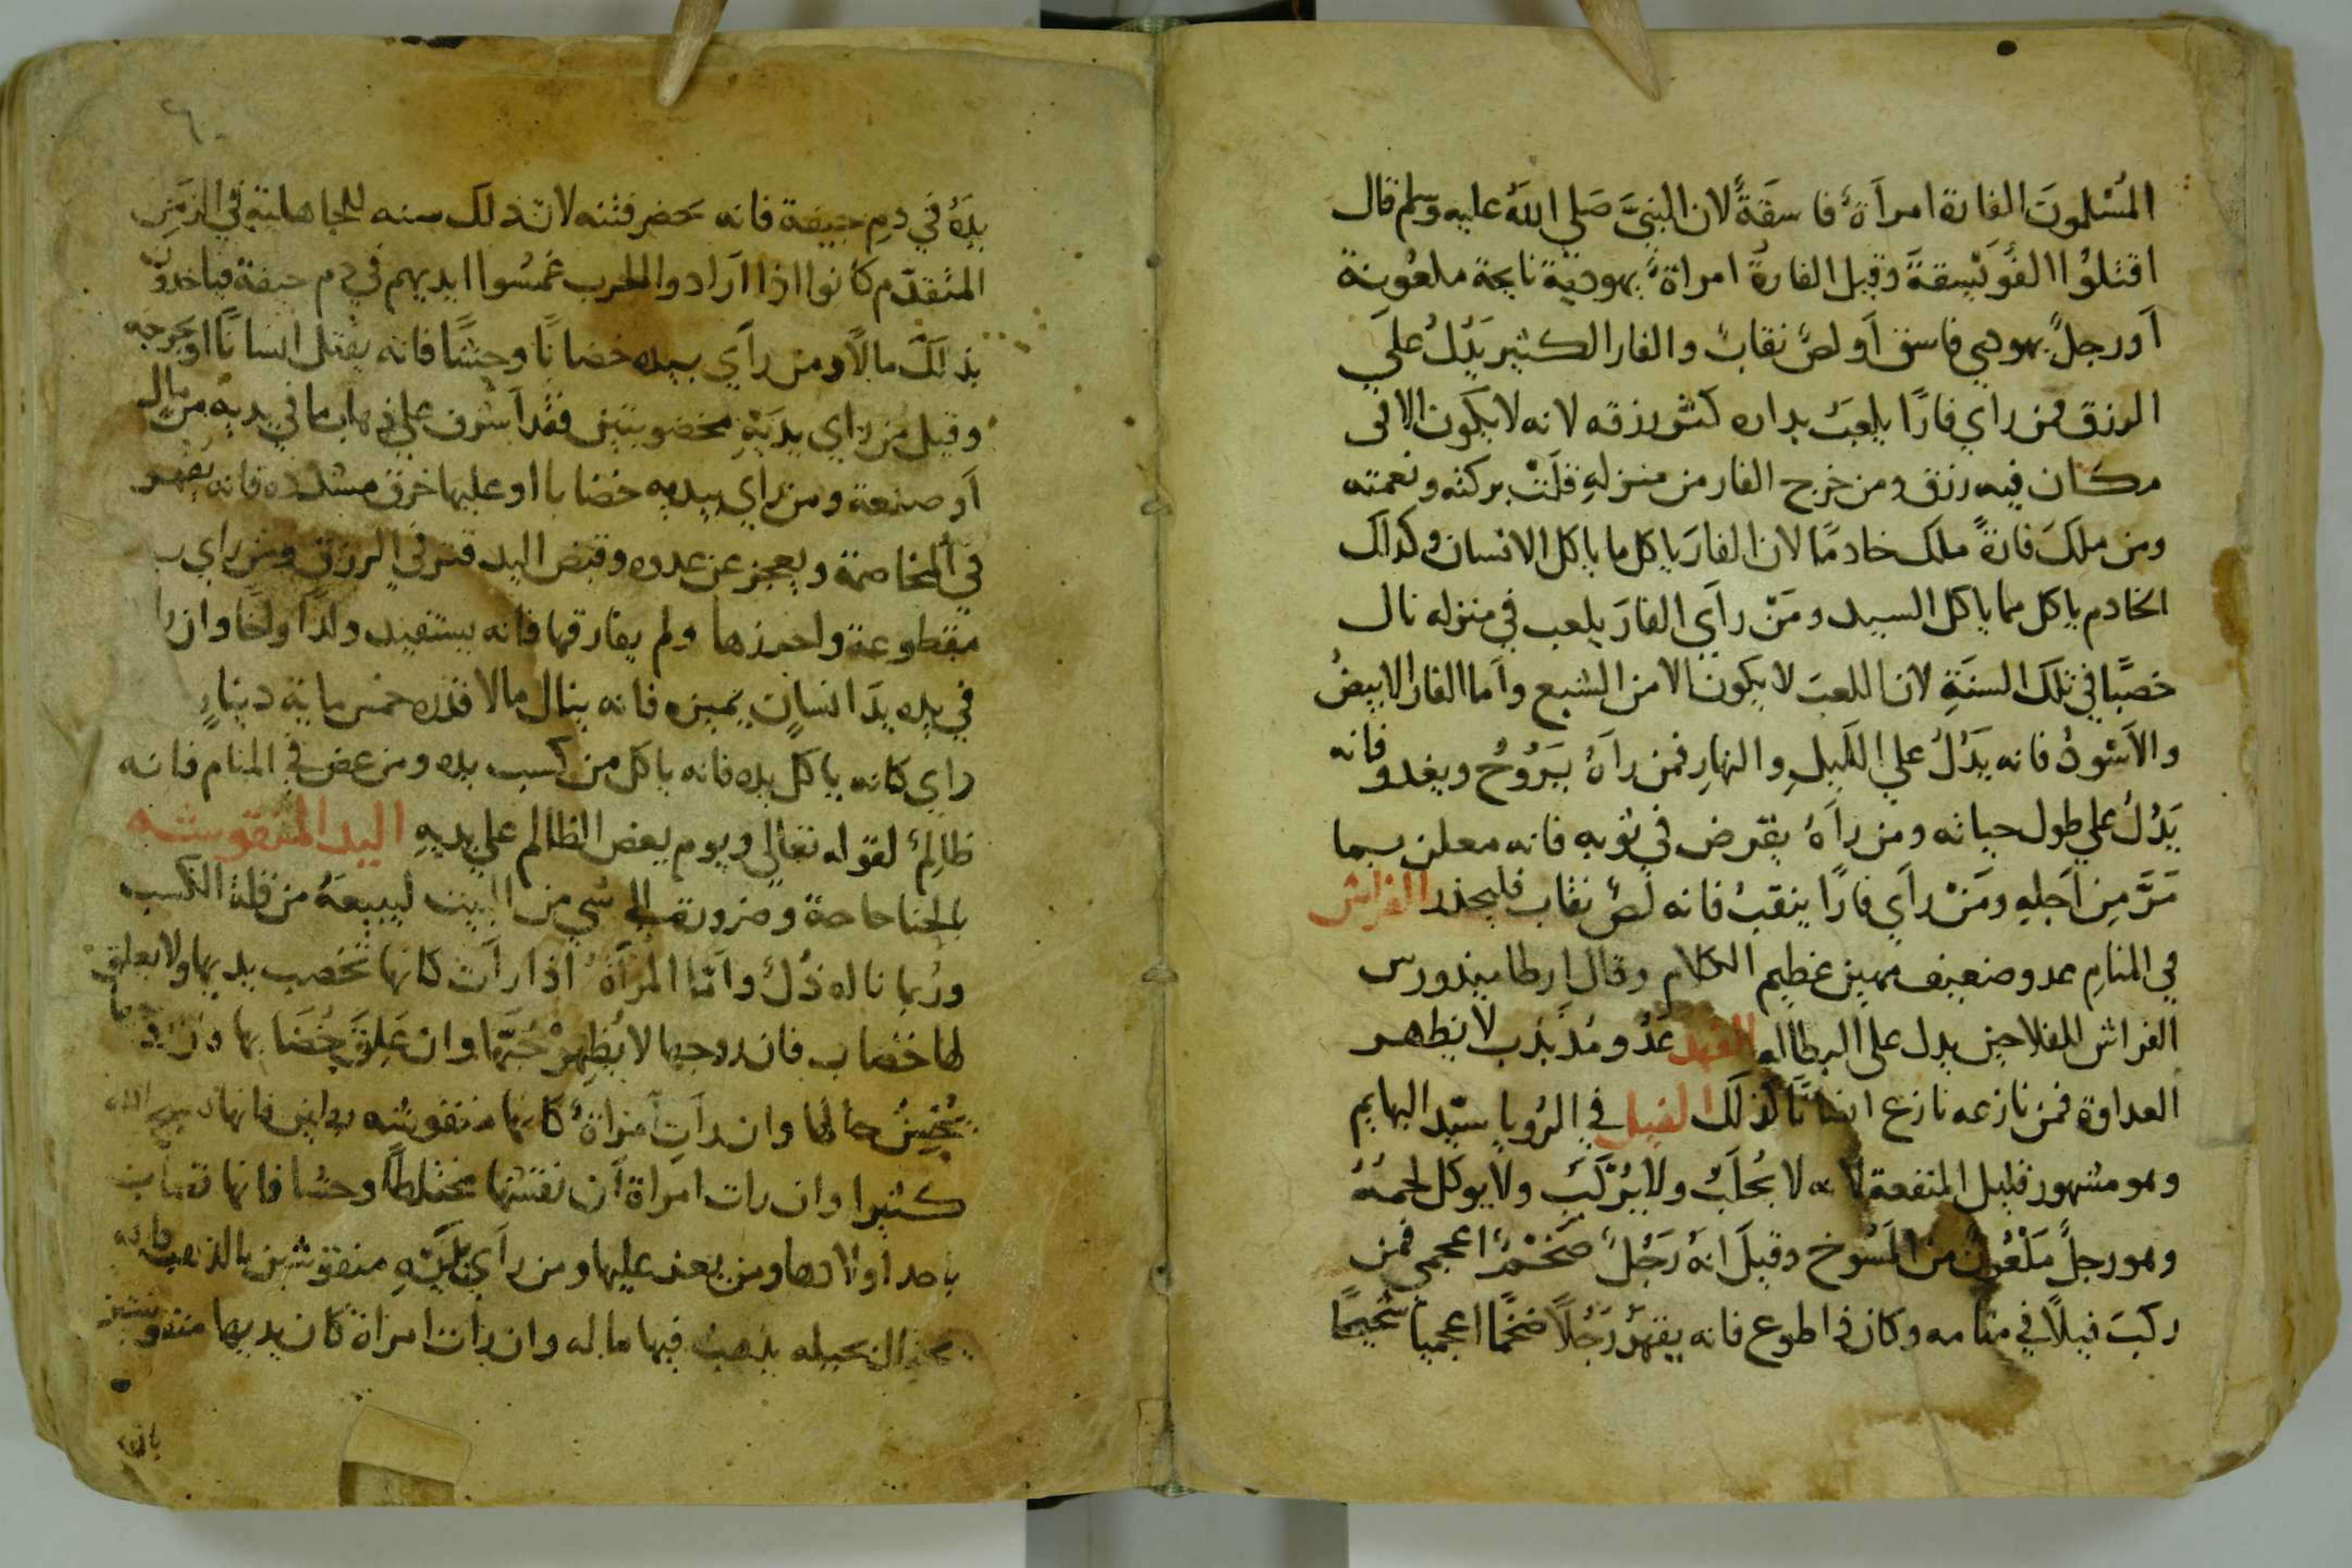 المُسْلمونَ الفارة امرأة فاسقَةً لان النبيَّ صَلى اللهُ عليه وسلم قال
اقتلوُا الفُوَيْسِقةَ وقيل الفارة امراة يهودية نايحة ملعونة
أورجل يهودي فاسق أو لص نقاب والفار الكثير يدل علي
الرزق فمن راي فارًا يلعبَ بداره كثر رزقه لانه لا يكون الا في
مكان فيه رزق ومن خرج الفار من منزلهِ قلت بركته ونعمته
ومن ملكَ فارةً ملك خادمًا لان الفارَ ياكل ما ياكل الانسان وكذلك
الخادم ياكل مما ياكل السيد ومَنْ رأي الفارَ يلعب في منزله نال
خصبًا في تلك السنَةِ لان اللعبَ لا يكون الا من الشبع وأما الفار الابيضُ
والأسْودُ فانه يَدُلُ علي الليلِ والنهارِ فمن رآهُ يَرُوُحُ ويغدو فانه
يَدُلُ علي طول حياته ومن رآهُ يقرض في ثوبه فانه معلن بما
مَرَّ مِن اَجلهِ ومَنْ رأي فارًا ينقبُ فانه لصُ نقاب فليحذر الفراش
في المنامِ عدو ضعيف مهين عظيم الكلام وقال ارطاميدورس
الفراش للفلاحين يدل على البطاله الفهد عَدُو مُذَبذب لا يظهر
العداوة فمن نازعه نازع انسانًا كذلك الفيل في الرُويا سيّد البهايم
وهو مشهور قليل المنفعة لانه لا يُحلَبُ ولا يُركَبُ ولا يوكل لحمُهُ
وهو رجلٌ مَلْعُونٌ من المسُوخ وقيلَ انهُ رَجُلٌ ضَخْمٌ اعجمي فمن
ركبَ فيلاً في منامه وكان في اطوع فانه يقهرُ رَجُلاً ضخمًا اعجميا شحيحًا
يدَهُ في دمِ جيفة فانه يحضر فتنه لان ذلك سنه للجاهلية في الزمَن
المتقدّم كانوا اذا ارادوا الحرب غمسُوا ايديهم في دم جيفة فياخذون
بذلكَ مالاً ومن رأي بيده خضابًا وحشًا فانه يقتل انسانًا او يجرحه
وقيل من راي يديَهِ مخضوبتين فقد أشرف علي ذهاب ما في يديه من مالِ
أو صنعة ومن راي بيديه خضابا او عليها خرق مشدده فانه يقهر
في المخاصمة ويعجز عن عدوه وقبض اليد قتر في الرزق ومن راي
مقطوعة واحرزها ولم يفارقها فانه يستفيد ولدًا واخًا وان را
في يده يدَ انسانٍ يميزه فانه ينال مالا قدره خمس ماية دينارٍ
راي كانه ياكل يده فانه ياكل من كسب يده ومن عض في المنام فانه
ظالِمٌ لقوله تعالي ويوم يعض الظالم علي يديهِ اليد المنقوشه
بالحنا حاجة وضرورة الي شي من البيت ليبيعَهُ من قلة الكسب
ورُبما ناله ذُلٌ وأمّا المرأةُ اذا رات كانها تخضب يديها ولا يعلق
لها خضاب فان زوجها لا يُظهِرْ حُبّها وان عَلِقَ خِضَابها فان زوجها
يُحسِنُ حالها وان رأت امراة كانها منقوشه
كثيرا وان رات امراة ان نقشها مختلطًا وحشا فانها تصاب
باحد اولادها ومن يعز عليها ومن رأي يدَيْهِ منقوشتين بالذهب فانه
يذهبُ فيها ماله وان رات امراة كان يديها منقوشتين